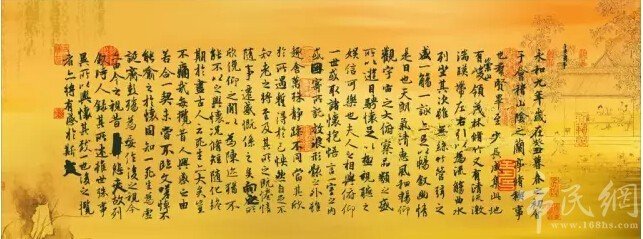 永和九年歲在癸丑暮春之初會
于會稽山陰之蘭亭脩稧事
也羣賢畢至少長咸集此地
有崇山峻領茂林脩竹又有清流激
湍暎帶左右引以為流觴曲水
列坐其次雖無絲竹管弦之
盛一觴一詠亦足以暢敘幽情
是日也天朗氣清惠風和暢仰
觀宇宙之大俯察品類之盛
所以遊目騁懷足以極視聽之
娛信可樂也夫人之相與俯仰
一世或取諸懷抱悟言一室之內
或因寄所託放浪形骸之外雖
趣舍萬殊靜躁不同當其欣
於所遇蹔得於己怏然自足不
知老之將至及其所之既惓情
隨事遷感慨係之矣向之所
欣俛仰之閒以為陳迹猶不
能不以之興懷況脩短隨化終
期於盡古人云死生亦大矣豈
不痛哉每攬昔人興感之由
若合一契未嘗不臨文嗟悼不
能喻之於懷固知一死生為虛
誕齊彭殤為妄作後之視今
亦由今之視昔悲夫故列
敘時人錄其所述雖世殊事
異所以興懷其致一也後之攬
者亦將有感於斯文
市民網
www.168hs.com